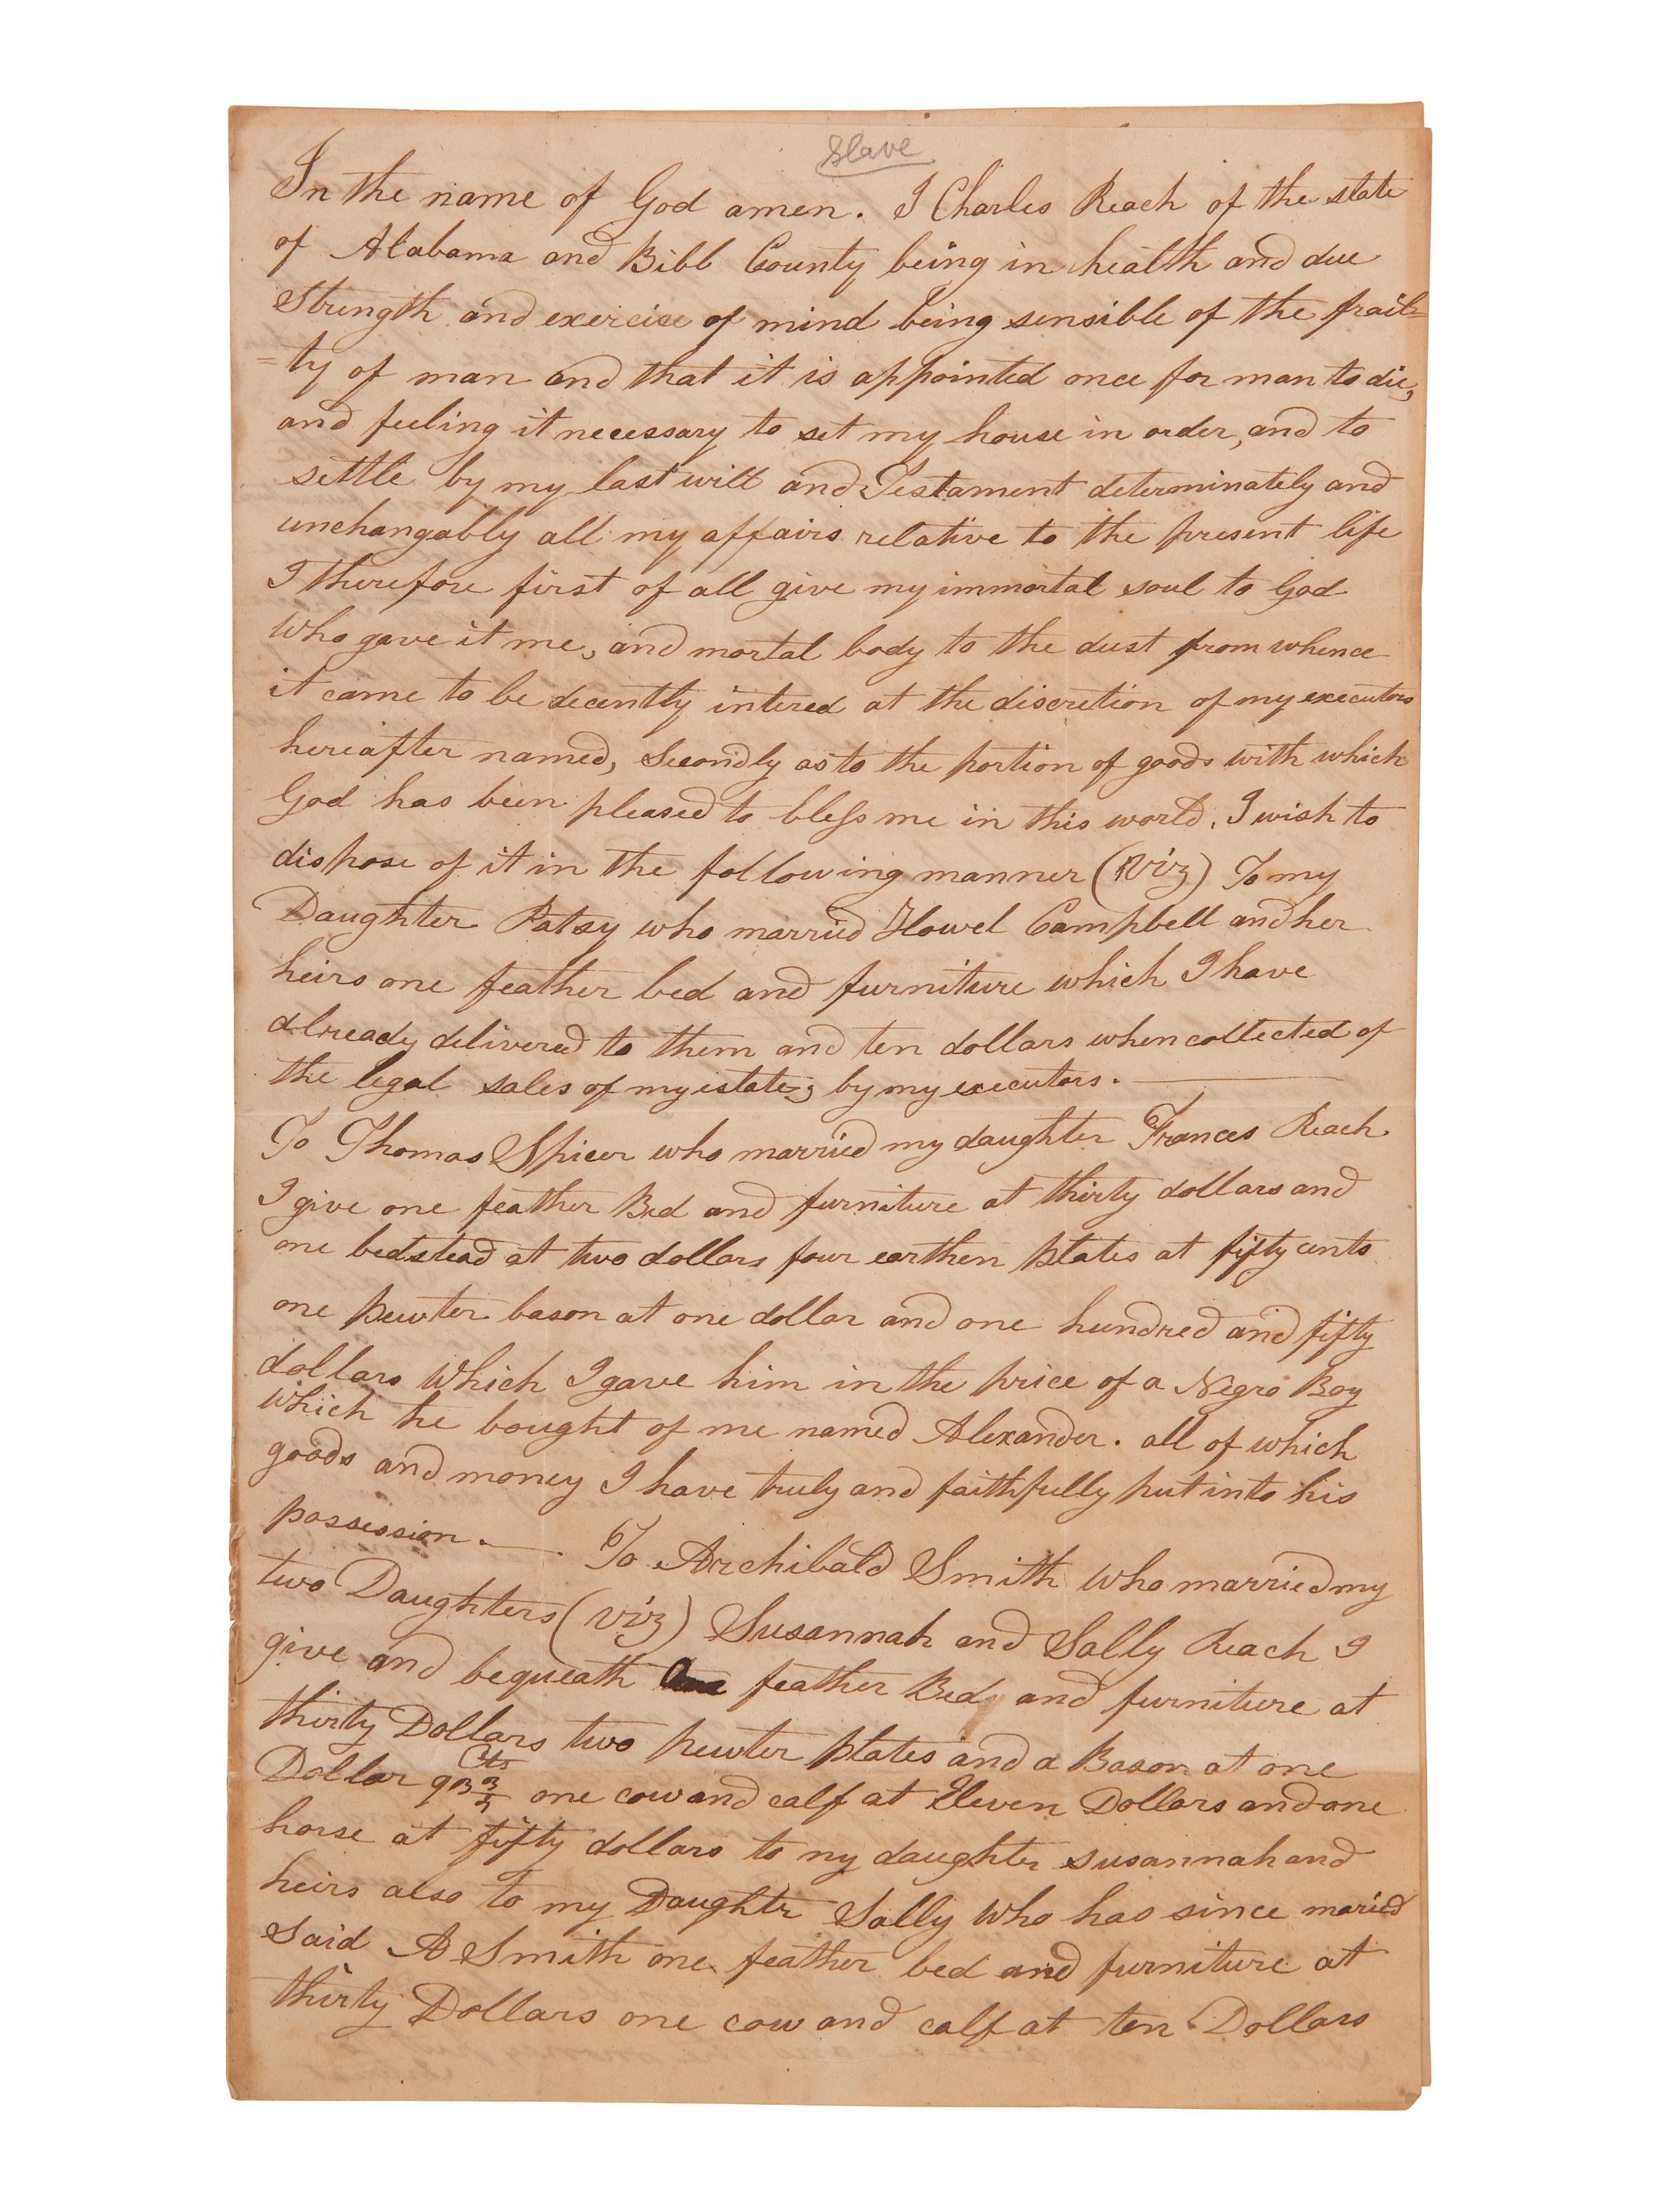 Slave
In the name of God amen. I Charles Reach of the state
of Alabama and Bibb County being in health and due
Strength and exercise of mind being sensible of the frail=
=ty of man and that it is appointed once for man to die,
and feeling it necessary to set my house in order, and to
settle by my last will and Testament determinately and
unchangably all my affairs relative to the present life
I therefore first of all give my immortal soul to God
who gave it me, and mortal body to the dust from whence
it came to be decently intered at the discretion of my executors
hereafter named, Secondly as to the portion of goods with which
God has been pleased to bless me in this world. I wish to
dispose of it in the following manner (Viz) To my
Daughter Patsy who married Howel Campbell and her
heirs one feather bed and furniture which I have
already delivered to them and ten dollars when collected of
the legal sales of my estate; by my executors.
To Thomas Spicer who married my daughter Frances Reach
I give one feather Bed and furniture at thirty dollars and
one bedstead at two dollars four earthen plates at fifty cents
one pewter bason at one dollar and one hundred and fifty
dollars which I gave him in the price of a Negro Boy
which he bought of me named Alexander. all of which
goods and money I have truly and faithfully put into his
possession. — To Archibald Smith who married my
two Daughters (viz) Susannah and Sally Reach I
give and bequeath feather Bed and furniture at
thirty Dollars two pewter plates and a Bason at one
Dollar Cts one cow and calf at Eleven Dollars and one
horse at fifty dollars to my daughter Susannah and
heirs also to my Daughter Sally who has since maried
Said A Smith one feather bed and furniture at
thirty Dollars one cow and calf at ten Dollars